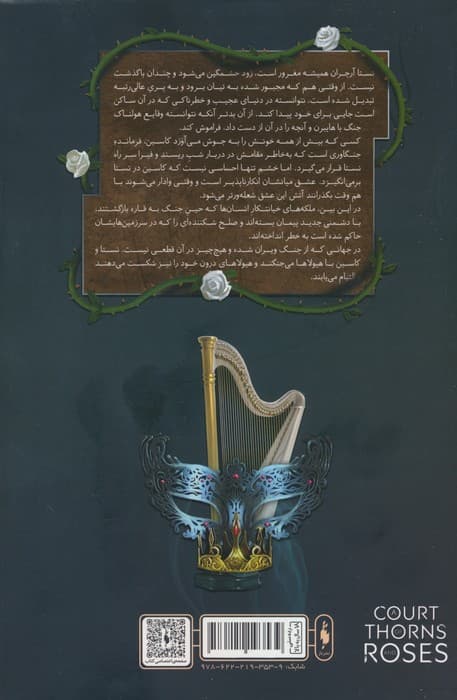 نستا آرچران همیشه مغرور است، زود خشمگین می‌شود و چندان باگذشت
نیست. از وقتی هم که مجبور شده به دیگ برود و به پری عالی‌رتبه
تبدیل شده است، نتوانسته در دنیای عجیب و خطرناکی که در آن ساکن
است جایی برای خود پیدا کند. از آن بدتر آنکه نتوانسته وقایع هولناک
جنگ با هایبرن و آنچه را در آن از دست داد، فراموش کند.
کسی که بیش از همه خونش را به جوش می‌آورد کاسین، فرمانده
جنگاوری است که به‌خاطر مقامش در دربار شب ریسند و فیرا سر راه
نستا قرار می‌گیرد. اما خشم تنها احساسی نیست که کاسین در نستا
برمی‌انگیزد. عشق میانشان انکارناپذیر است و وقتی وادار می‌شوند با
هم وقت بگذرانند آتش این عشق شعله‌ورتر می‌شود.
در این بین، ملکه‌های خیانتکار انسان‌ها که حین جنگ به قاره بازگشتند،
با دشمنی جدید پیمان بسته‌اند و صلح شکننده‌ای را که در سرزمین‌هایشان
حاکم شده است به خطر انداخته‌اند.
در جهانی که از جنگ ویران شده و هیچ‌چیز در آن قطعی نیست، نستا و
کاسین با هیولاها می‌جنگند و هیولاهای درون خود را نیز شکست می‌دهند
و التیام می‌یابند.
A
COURT
OF
THORNS
AND
ROSES
صفحه‌ی اختصاصی کتاب
رده سنی
شابک: ۹-۳۵۳-۲۱۹-۶۲۲-۹۷۸